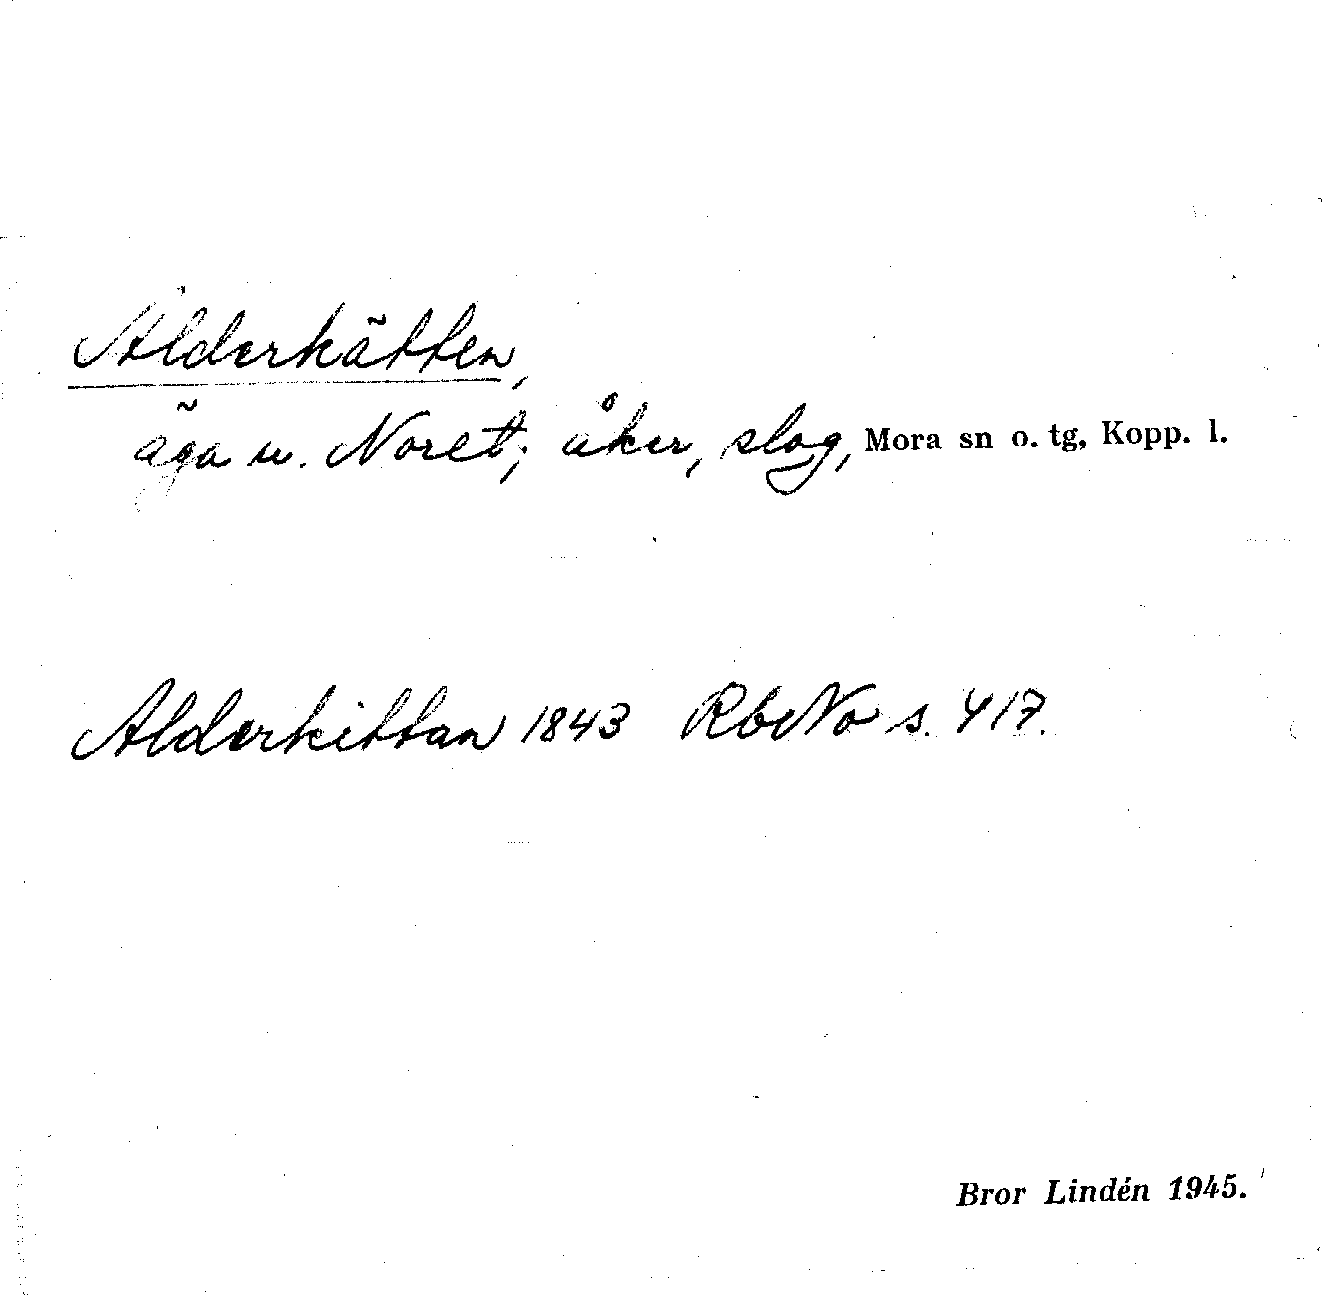 Ålderkätten,
äga u. Noret; åker, slog, Mora sn o. tg, Kopp. l.
Alderkittan 1843 RbNo s. 417.
Bror Lindén 1945.